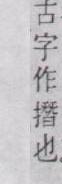 古字作撍也